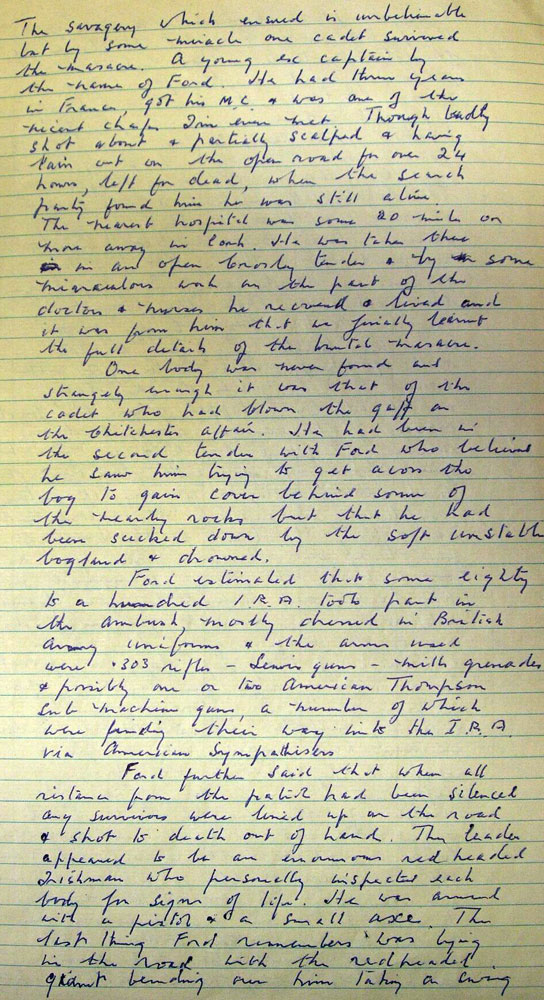 The savagery which ensued is unbelievable
but by some miracle one cadet survived
the masacre. A young ex captain by
the name of Ford. He had three years
in France, got his M.C. & was one of the
nicest chaps I'm ever met. Though badly
shot about & partially scalped & having
lain out on the open road for over 24
hours, left for dead, when the search
party found him he was still alive.
The nearest hospital was some 20 miles or
more away in Cork. He was taken there
in an open Crossley tender & by some
miraculous work on the part of the
doctors & nurses he recovered & lived and
it was from him that we finally learnt
the full details of the brutal masacre.
One body was never found and
strangely enough it was that of the
cadet who had blown the gaff on
the Chitchester affair. He had been in
the second tender with Ford who believed
he saw him trying to get acoss the
bog to gain cover behind some of
the nearby rocks but that he had
been sucked down by the soft unstable
bogland & drowned.
Ford estimated that some eighty
to a hundred I.R.A. took part in
the ambush, mostly dressed in British
Army uniforms & the arms used
were .303 rifles - Lewis guns - mills grenades
& possibly one or two American Thompson
sub machine guns, a number of which
were finding their way into the I.R.A.
via American Sympathisers
Ford further said that when all
ristance from the patrol had been silenced
any survivors were lined up on the road
& shot to death out of hand. The leader
appeared to be an enormous red headed
Irishman who personally inspected each
body for signs of life. He was armed
with a pistol & a small axe. The
last thing Ford remembers was lying
in the road with the redheaded
giant bending over him taking a swing